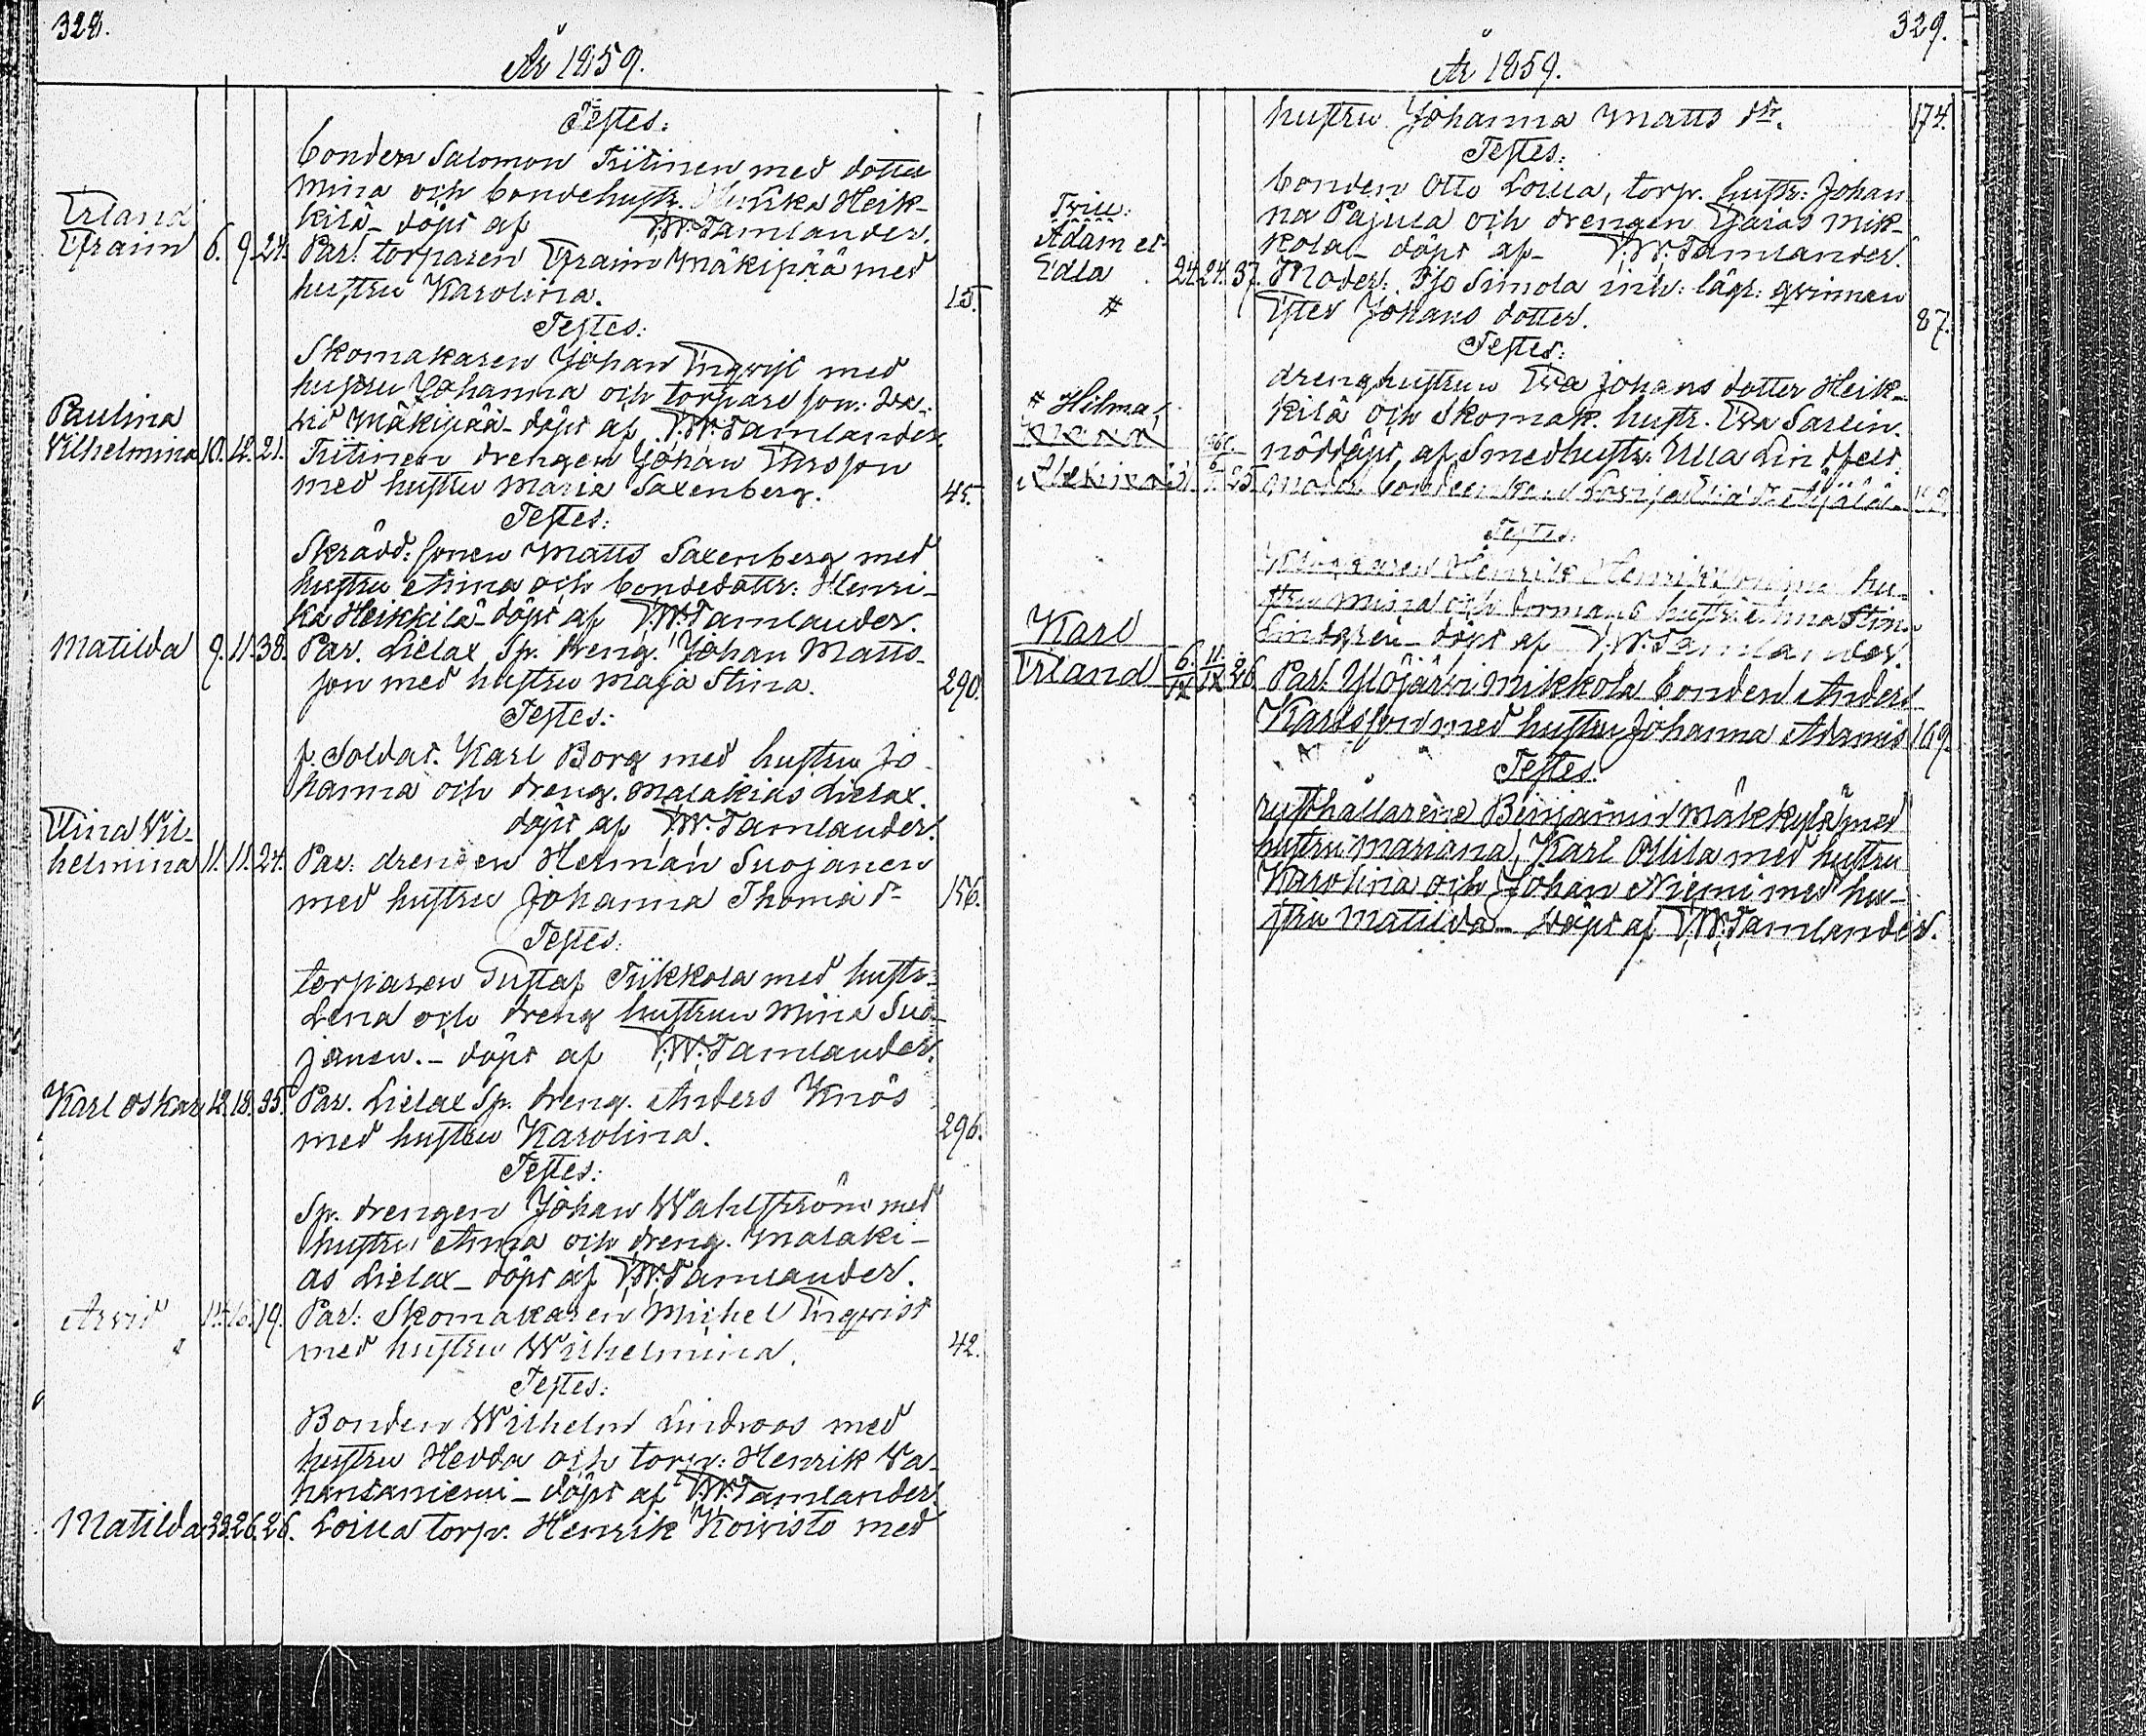 328.
År 1859.
Testes:
bonden Salomon Tiitinen med dotter
Mina och bondehustr. Henrika Heik-
kilä - döpt af W. Tamlander.
Erland
Efraim 6. 9. 24. Par. torparen Efraim Mäkipää med
hustru Karolina. 15.
Testes:
Skomakaren Johan Engqvist med
hustru Johanna och torpare son: Da-
vid Mäkipää - döpt af W. Tamlander
Paulina
Vilhelmina 10. 12. 21. Tiitinen drengen Johan Ersson
med hustru Maria Saxenberg. 45.
Testes:
Skrädd: sonen Matts Saxenberg med
hustru Anna och bondedottr: Henri-
ka Heikkilä - döpt af W. Tamlander.
Matilda 9. 11. 38. Par. Lielax Sp. dreng. Johan Matts-
son med hustru Maja Stina. 290.
Testes:
f. Soldat. Karl Borg med hustru Jo-
hanna och dreng. Malakias Lielax.
döpt af W. Tamlander.
Elina Vil-
helmina 11. 11. 24. Par: drengen Herman Suojanen
med hustru Johanna Thoma dr 156.
Testes:
torparen Gustaf Tiikkola med hustr:
Lena och dreng hustrun Mina Suo-
janen. - döpt af W. Tamlander.
Karl Oskar 12. 18. 35. Par. Lielax Sp. dreng. Anders Knös
med hustru Karolina. 296.
Testes:
Sp. drengen Johan Wahlström med
hustru Anna och dreng. Malaki-
as Lielax - döpt af W. Tamlander.
Arvid 14. 16. 19. Par: Skomakaren Michel Engqvist
med hustru Wilhelmina. 42.
Testes:
Bonden Wilhelm Lindroos med
hustru Hedda och torp: Henrik Va-
hantaniemi - döpt af W. Tamlander.
Matilda 23. 26. 26. Loilla torp. Henrik Koivisto med
329.
År 1859.
hustru Johanna Matts dr. 174.
Testes:
bonden Otto Loilla, torp. hustr: Johan
na Pajula och drengen Esaias Mik-
kola - döpt af W. Tamlander.
Trill:
Adam et
Edla 24. 24. 37. Moder: Ojo Simola inh: lägr: qvinnan
# Ester Johans dotter. 87.
Testes:
drenghustrun Eva Johans dotter Heik-
# Hilma kilä och Skomak. hustr. Eva Sarlin.
nöddöpt af Smedhustr: Ulla Lindfelt.
25.
Testes:
Henrik hu-
stru Mina och hustr: Anna Stina
Lindgren - döpt af W. Tamlander.
Karl
Erland 6./IX 11./IX 26. Par. Ylöjärvi Mikkola bonden Anders
Karlsson med hustru Johanna Adamsd 169.
Testes:
rusthållarene Benjamin Mäkkylä med
hustru Mariana, Karl Ollila med hustru
Karolina och Johan Niemi med hu-
stru Matilda - döpt af W. Tamlander.